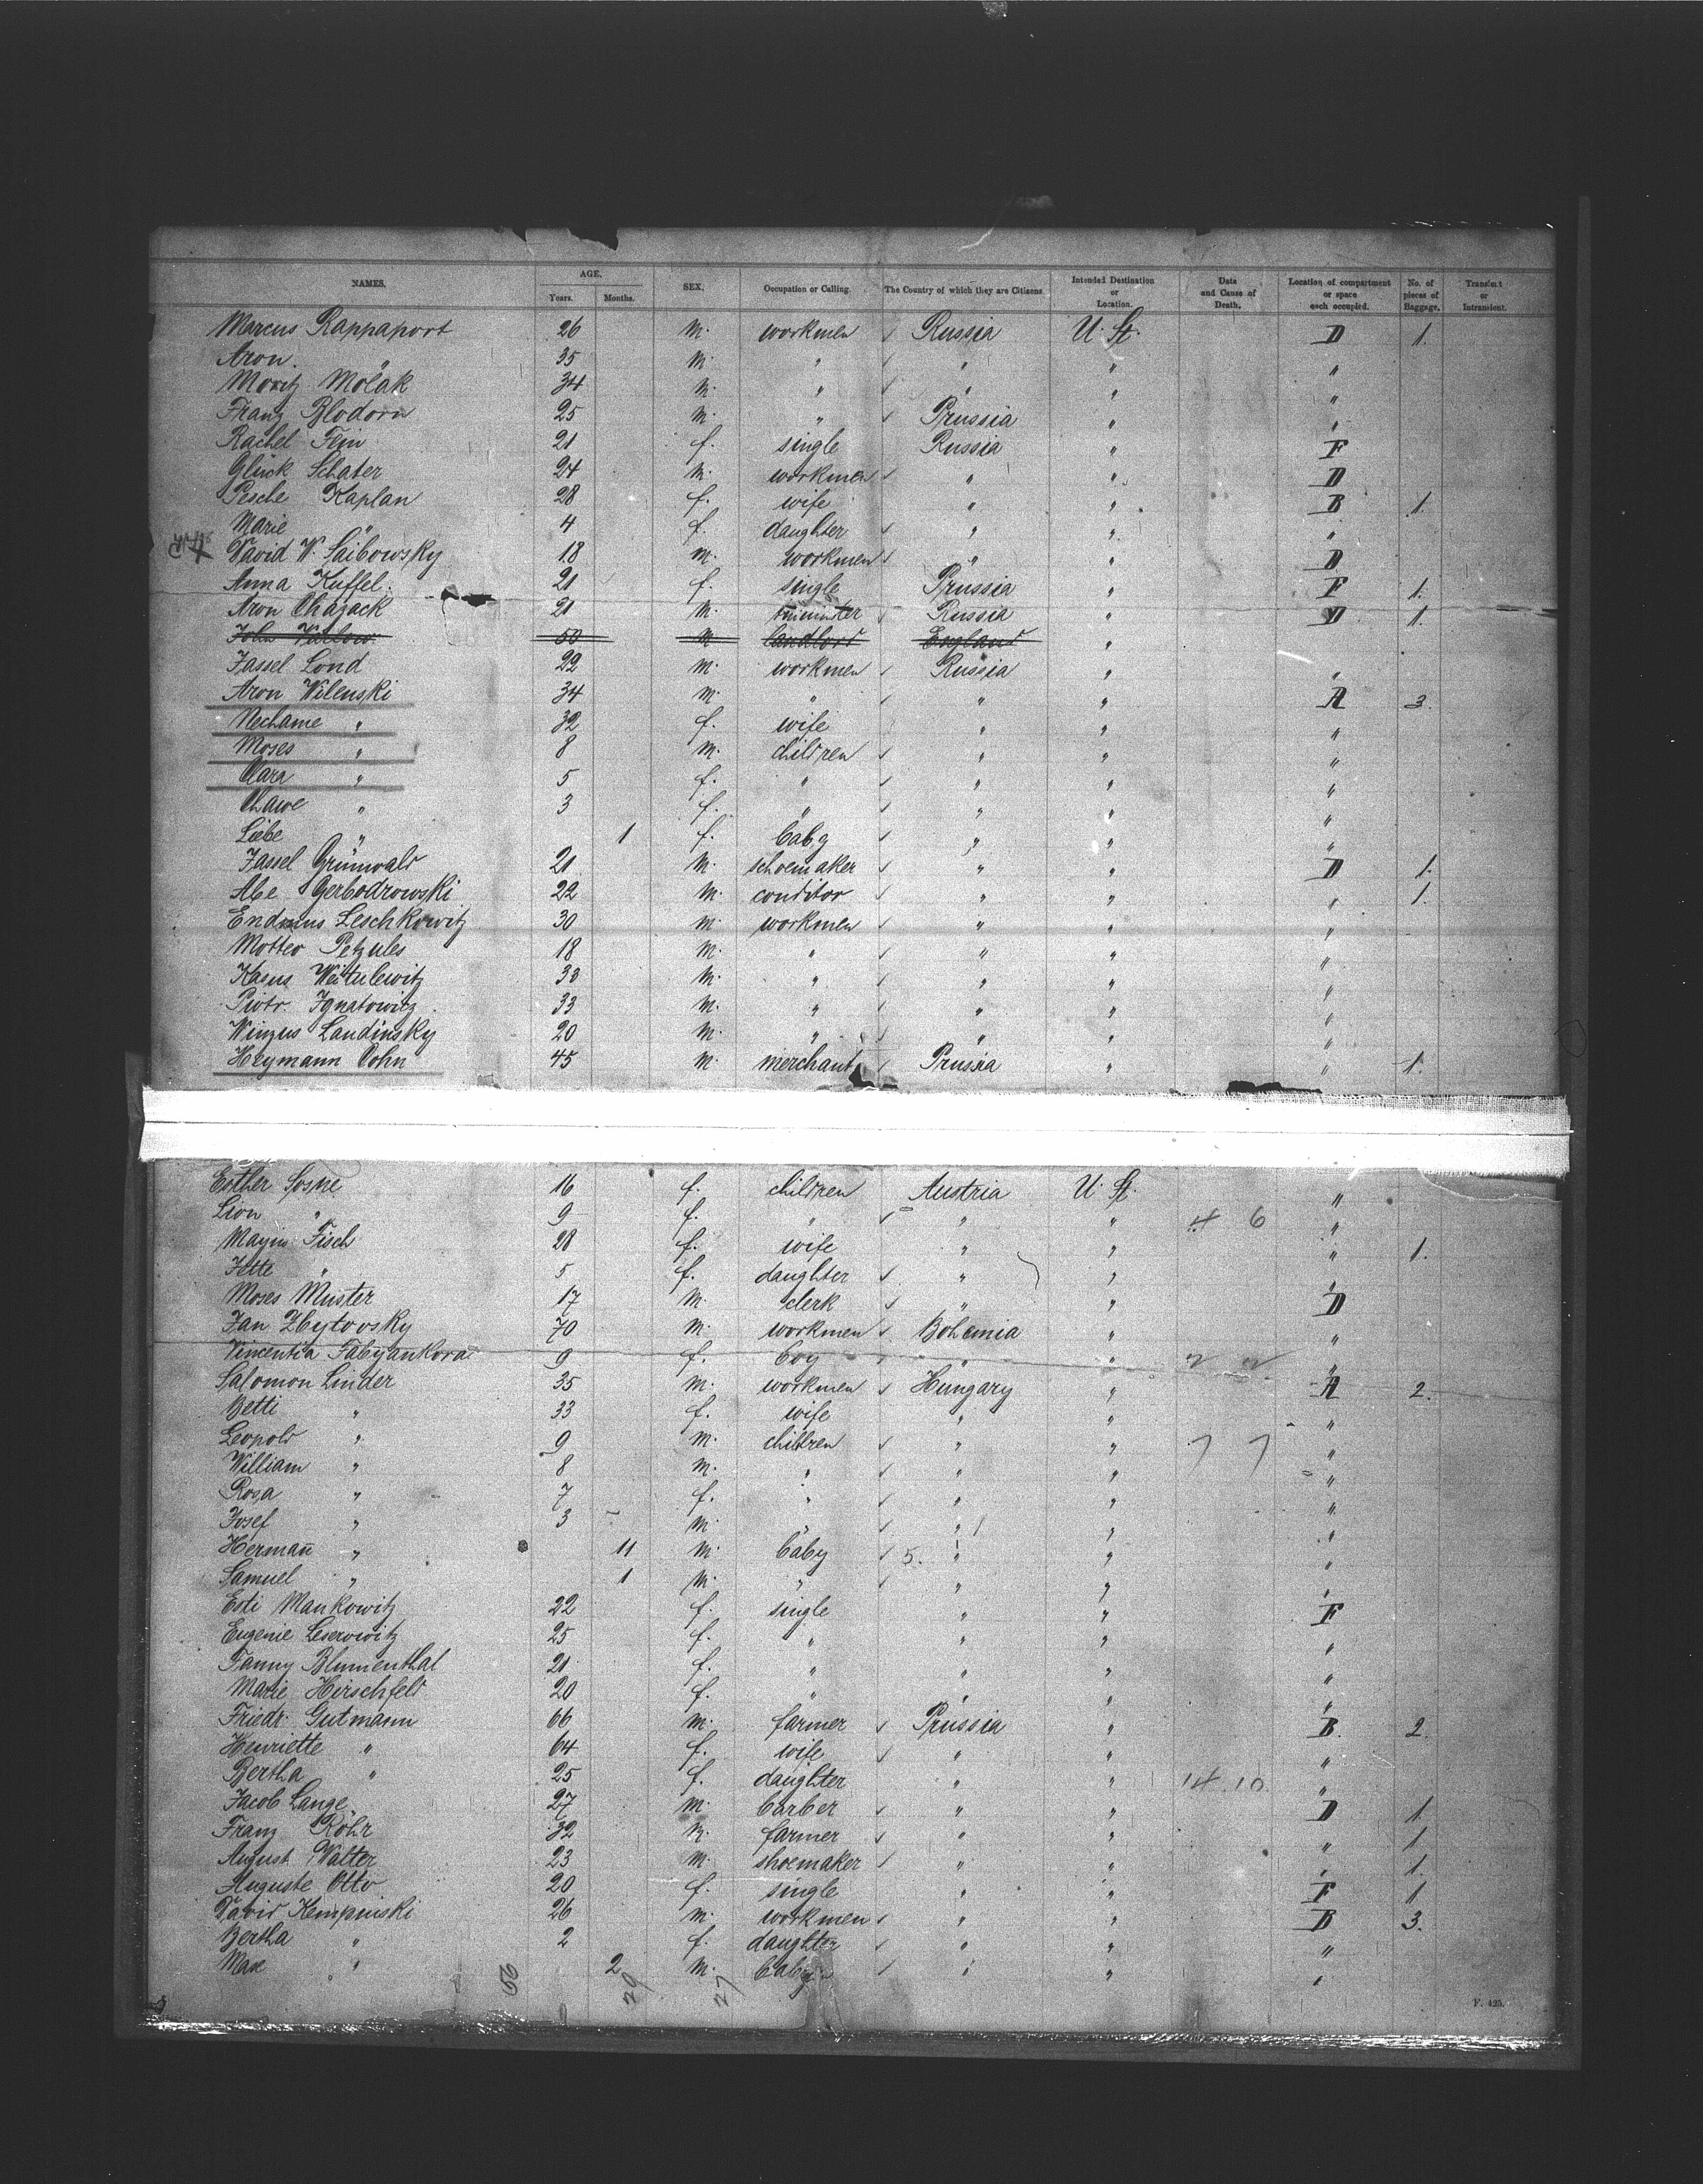 NAMES. AGE. Years. Months. SEX. Occupation or Calling. The Country of which they are Citizens. Intended Destination or Location. Date and Cause of Death. Location of compartment or space each occupied. No. of pieces of Baggage. Transient or Intransient.
Marcus Rappaport 26 m. workmen ✓ Russia U. St. D 1.
Aron " 35 m. " ✓ " " "
Moritz Molak 34 m. " ✓ " " "
Franz Blodorn 25 m. " ✓ Prussia " "
Rachel Fein 21 f. single Russia " F
Glück Schater 24 m. workmen ✓ " " D
Pesche Kaplan 28 f. wife " " B 1.
Marie " 4 f. daughter ✓ " " "
David W. Saibowsky 18 m. workmen ✓ " " D
Anna Kuffel 21 f. single Prussia " F 1.
Aron Chajack 21 m. Russia " D 1.
John 50 m landlord England "
Jassel Lond 22 m. workmen ✓ Russia " "
Aron Wilenski 34 m. " ✓ " " A 3.
Nechame " 32 f. wife " " "
Moses " 8 m. children ✓ " " "
Clara " 5 f. " ✓ " " "
Chawe " 3 f. " ✓ " " "
Liebe " 1 f. baby ✓ " " "
Jassel Grünwald 21 m. schoemaker ✓ " " D 1.
Abe Gerbodrowski 22 m. conditor ✓ " " " 1.
Leschkowitz 30 m. workmen ✓ " " "
Motteo Petzules 18 m. " ✓ " " "
Kasus Weitulewitz 33 m. " ✓ " " "
Piotr. Ignatowitz 33 m. " ✓ " " "
Winzus Landinsky 20 m. " ✓ " " "
Heymann Cohn 45 m. merchant ✓ Prussia " " 1.
Esther Sosne 16 f. children Austria U. St. "
Lion " 9 f. " ✓ " " 4 6 "
Mayin Fisch 28 f. wife " " " 1.
Jette " 5 f. daughter ✓ " " "
Moses Muster 17 m. clerk ✓ " " D
Jan Zbytovsky 70 m. workmen ✓ Bohemia " "
Vincentia Fabyankova 9 f. boy ✓ " " 2 2 "
Salomon Linder 35 m. workmen ✓ Hungary " A 2.
Betti " 33 f. wife " " "
Leopold " 9 m. children ✓ " " 7 7 "
William " 8 m. " ✓ " " "
Rosa " 7 f. " ✓ " " "
Josef " 3 m. " ✓ " " "
Hermañ " 11 m. baby ✓ 5. " " "
Samuel " 1 m. " ✓ " " "
Esti Mankowitz 22 f. single " " F
Eugenie Leserowitz 25 f. " " " "
Fanny Blumenthal 21 f. " " " "
Marie Hirschfeld 20 f. " " " "
Friedr. Gutmann 66 m. farmer ✓ Prussia " B. 2.
Henriette " 64 f. wife ✓ " " "
Bertha " 25 f. daughter " " 14 10 "
Jacob Lange 27 m. barber ✓ " " D 1.
Franz Röhr 32 m. farmer ✓ " " " 1.
August Walter 23 m. shoemaker ✓ " " " 1.
Auguste Otto 20 f. single " " F 1
David Kempinski 26 m. workmen ✓ " " B 3.
Bertha " 2 f. daughter ✓ " " "
Max " 2 m. baby ✓ " " "
56 29 27
F. 425.